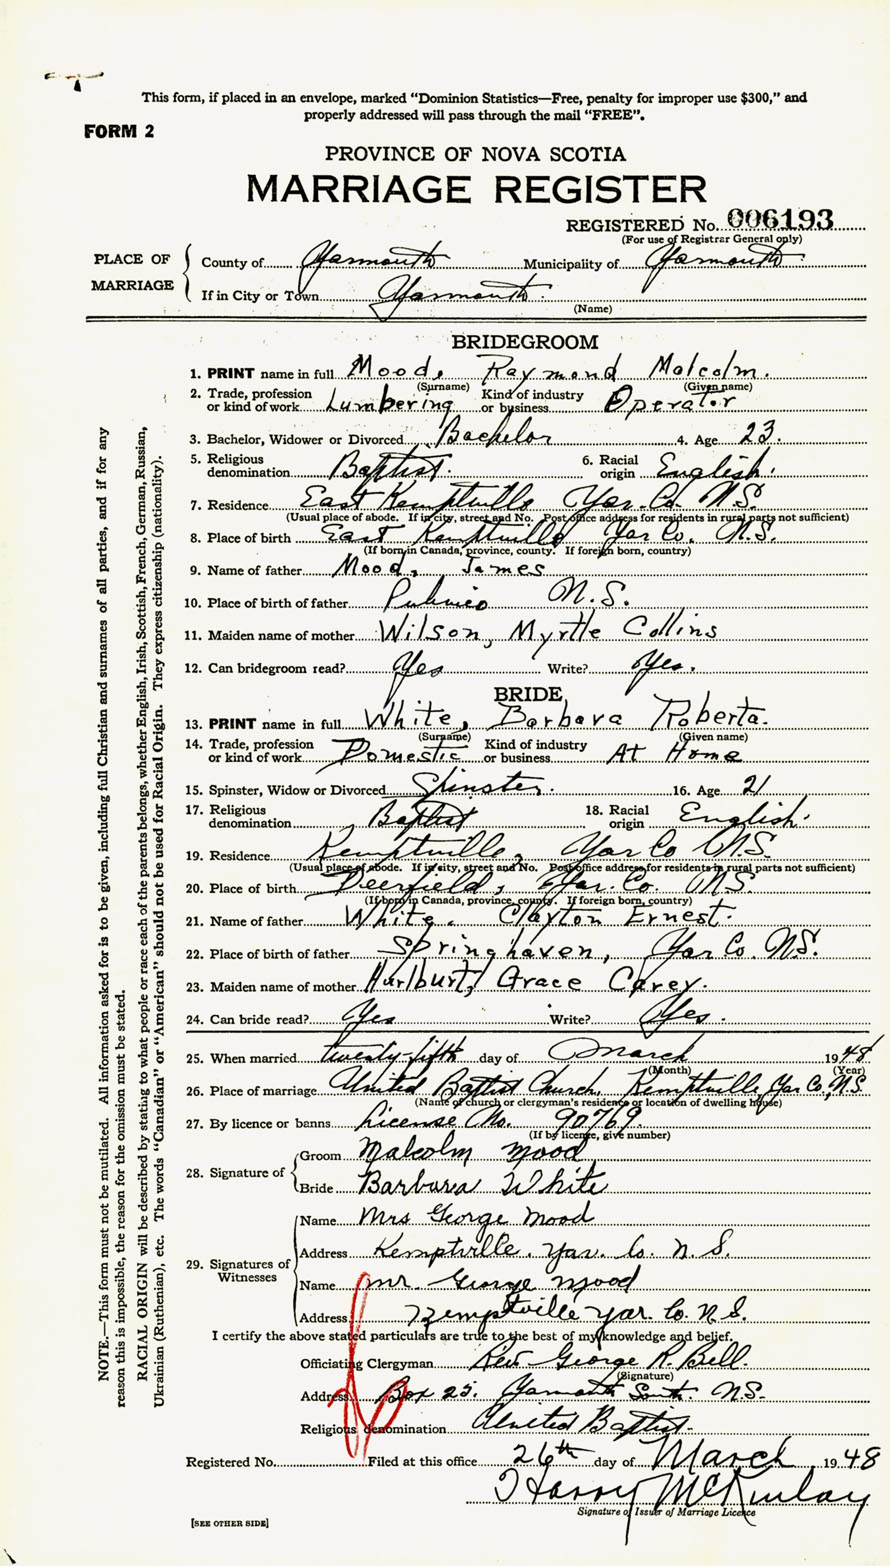 This form, if placed in an envelope, marked “Dominion Statistics—Free, penalty for improper use $300,” and
properly addressed will pass through the mail “FREE”.
FORM 2
PROVINCE OF NOVA SCOTIA
MARRIAGE REGISTER
REGISTERED No. 006193
(For use of Registrar General only)
PLACE OF MARRIAGE
County of Yarmouth Municipality of Yarmouth
If in City or Town Yarmouth
(Name)
BRIDEGROOM
1. PRINT name in full Mood, Raymond Malcolm.
(Surname) (Given name)
2. Trade, profession or kind of work Lumbering Kind of industry or business Operator
3. Bachelor, Widower or Divorced Bachelor 4. Age 23.
5. Religious denomination Baptist. 6. Racial origin English.
7. Residence East Kemptville Yar. Co. N.S.
(Usual place of abode. If in city, street and No. Post office address for residents in rural parts not sufficient)
8. Place of birth East Kemptville Yar Co. N.S.
(If born in Canada, province, county. If foreign born, country)
9. Name of father Mood, James
10. Place of birth of father Pubnico N.S.
11. Maiden name of mother Wilson, Myrtle Collins
12. Can bridegroom read? Yes Write? Yes.
BRIDE
13. PRINT name in full White, Barbara Roberta.
(Surname) (Given name)
14. Trade, profession or kind of work Domestic Kind of industry or business At Home
15. Spinster, Widow or Divorced Spinster. 16. Age 21
17. Religious denomination Baptist 18. Racial origin English.
19. Residence Kemptville, Yar Co N.S.
(Usual place of abode. If in city, street and No. Post office address for residents in rural parts not sufficient)
20. Place of birth Deerfield, Yar. Co. N.S.
(If born in Canada, province, county. If foreign born, country)
21. Name of father White. Clayton Ernest.
22. Place of birth of father Springhaven, Yar Co. N.S.
23. Maiden name of mother Hurlburt, Grace Carey.
24. Can bride read? Yes Write? Yes.
25. When married twenty-fifth day of March 1948
(Month) (Year)
26. Place of marriage United Baptist Church, Kemptville, Yar Co., N.S.
(Name of church or clergyman's residence or location of dwelling house)
27. By licence or banns License No. 90769.
(If by licence, give number)
28. Signature of
Groom Malcolm Mood
Bride Barbara White
29. Signatures of Witnesses
Name Mrs George Mood
Address Kemptville. Yar. Co. N.S.
Name Mr. George Mood
Address Kemptville Yar. Co. N.S.
I certify the above stated particulars are true to the best of my knowledge and belief.
Officiating Clergyman Rev. George R. Bell.
(Signature)
Address Box 25. Yarmouth South. N.S.
Religious denomination United Baptist.
Registered No. Filed at this office 26th day of March, 1948
Harry McKinlay
Signature of Issuer of Marriage Licence
[SEE OTHER SIDE]
NOTE.—This form must not be mutilated. All information asked for is to be given, including full Christian and surnames of all parties, and if for any
reason this is impossible, the reason for the omission must be stated.
RACIAL ORIGIN will be described by stating to what people or race each of the parents belongs, whether English, Irish, Scottish, French, German, Russian,
Ukrainian (Ruthenian), etc. The words “Canadian” or “American” should not be used for Racial Origin. They express citizenship (nationality).